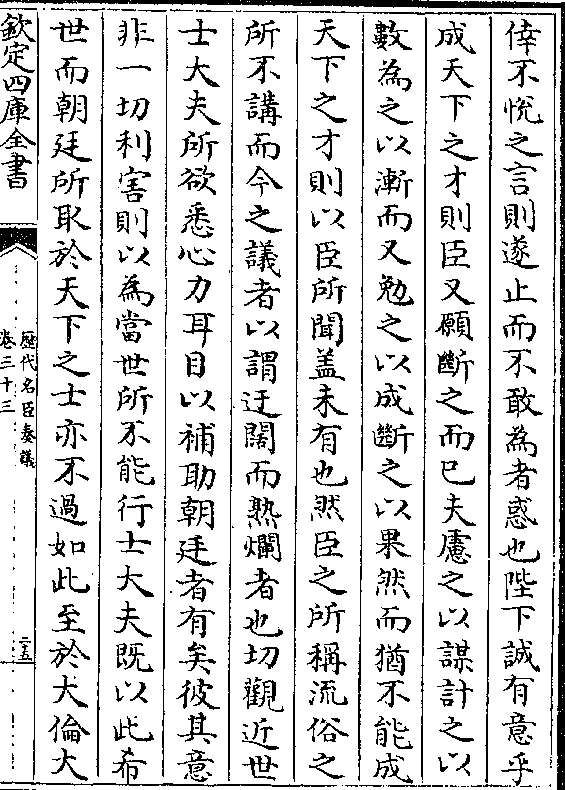 倖不悅之言則遂止而不敢為者惑也陛下誠有意乎
成天下之才則臣又願斷之而已夫慮之以謀計之以
數為之以漸而又勉之以成斷之以果然而猶不能成
天下之才則以臣所聞盖未有也然臣之所稱流俗之
所不講而今之議者以謂迂闊而熟爛者也切觀近世
士大夫所欲悉心力耳目以補助朝廷者有矣彼其意
非一切利害則以為當世所不能行士大夫既以此希
世而朝廷所取於天下之士亦不過如此至於大倫大
欽定四庫全書
歷代名臣奏議
卷三十三
二五